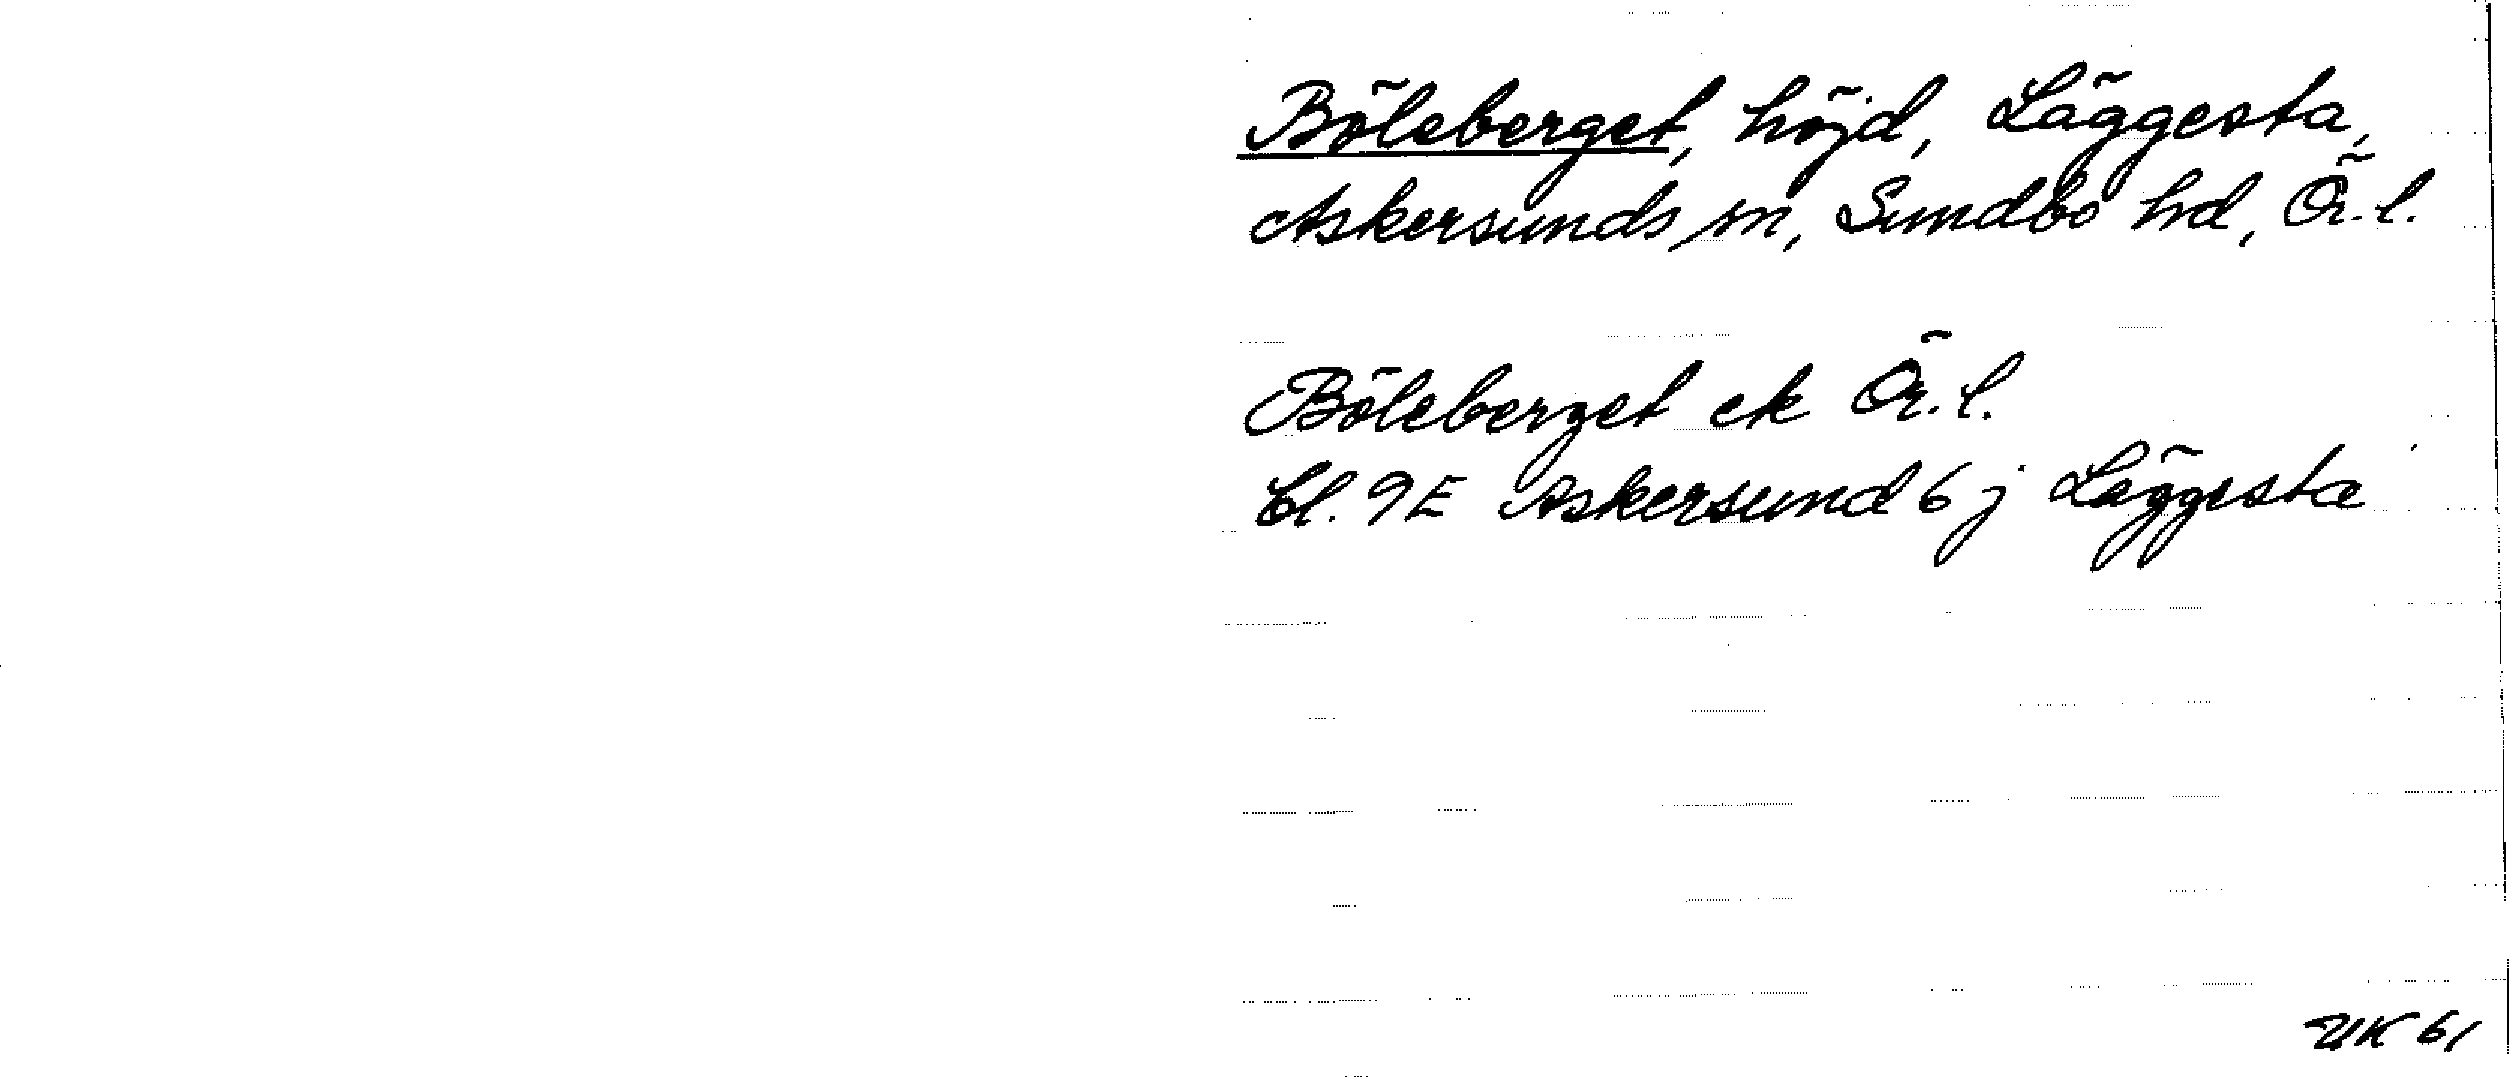 Böleberget, höjd, Läggesta,
Askersunds sn, Sundbo hd, Ör. l.
Böleberget ek Ör. l.
bl. 9E Askersund 6 j Läggesta
UK 61